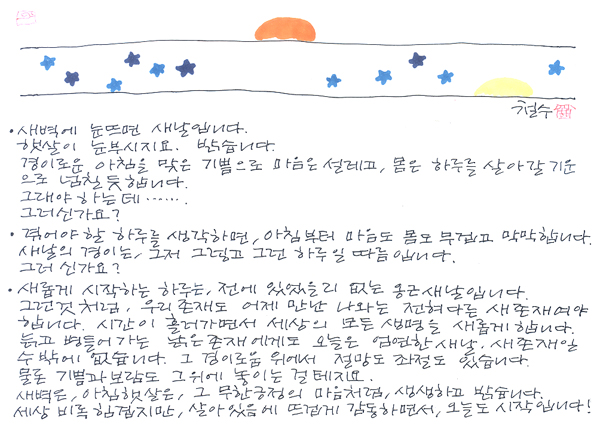 철수
• 새벽에 눈뜨면 새날입니다.
햇살이 눈부시지요. 밝습니다.
경이로운 아침을 맞은 기쁨으로 마음은 설레고, 몸은 하루를 살아갈 기운
으로 넘칠듯 합니다.
그래야 하는데…….
그러신가요?
• 겪어야 할 하루를 생각하면, 아침부터 마음도 몸도 무겁고 막막합니다.
새날의 경이는, 그저 그렇고 그런 하루일 따름입니다.
그러신가요?
• 새롭게 시작하는 하루는, 전에 있었을리 없는 온근 새날입니다.
그런것 처럼, 우리 존재도 어제 만난 나와는 전혀 다른 새존재여야
합니다. 시간이 흘러가면서 세상의 모든 생명을 새롭게 합니다.
늙고 병들어가는 낡은 존재에게도 오늘은 엄연한 새날. 새존재일
수 밖에 없습니다. 그 경이로움 위에서 절망도 좌절도 있습니다.
물론 기쁨과 보람도 그 위에 놓이는 걸테지요.
새벽은, 아침햇살은, 그 무한긍정의 마음처럼, 생생하고 밝습니다.
세상 비록 힘겹지만, 살아있음에 뜨겁게 감동하면서, 오늘도 시작입니다!